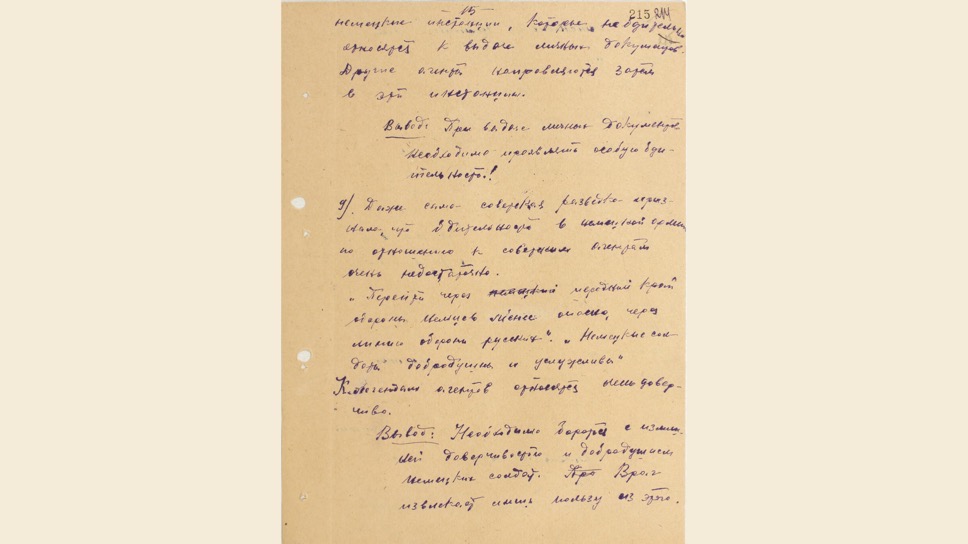 15
215 214
немецкие инстанции, которые не бдительно
относятся к выдаче личных документов.
Другие агенты направляются затем
в эти инстанции.
Вывод: При выдаче личных документов
необходимо проявлять особую бди-
тельность!
9/. Даже сама советская разведка приз-
нала, что бдительность в немецкой армии
по отношению к советским агентам
очень недостаточна.
„Перейти через передний край
обороны немцев менее опасно, через
линию обороны русских". „Немецкие сол-
даты добродушны и услужливы"
К агентам относятся очень довер-
чиво.
Вывод: Необходимо бороться с излиш-
ней доверчивостью и добродушием
немецких солдат. Враг
извлекает лишь пользу из этого.